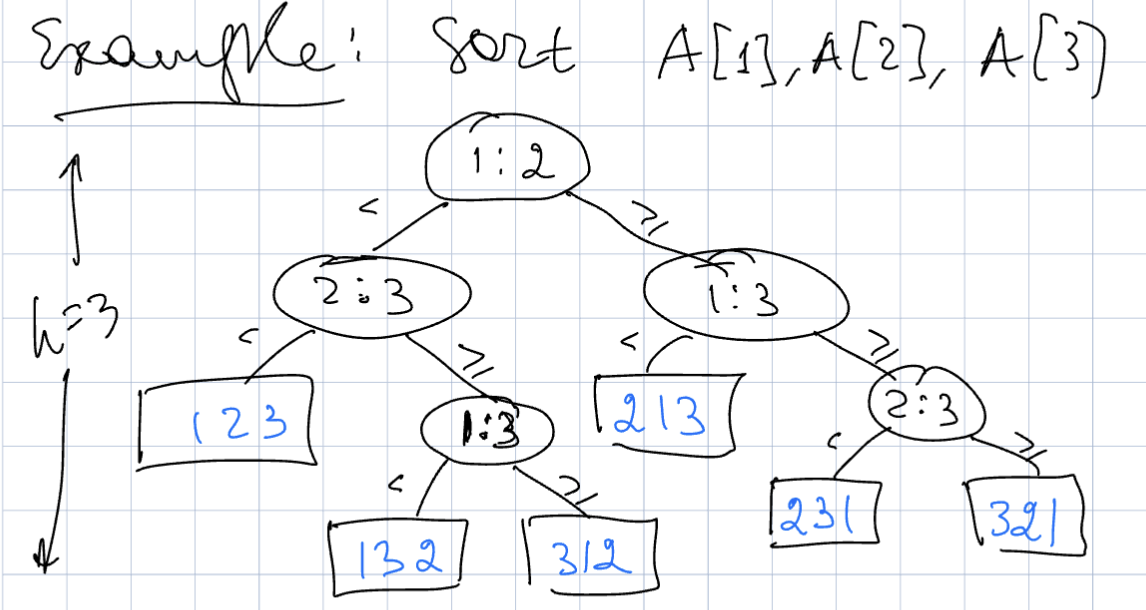 Example: Sort A[1], A[2], A[3]
1:2
< ≥
2:3 1:3
h=3
< ≥ < ≥
123 1:3 213 2:3
< ≥ < ≥
132 312 231 321